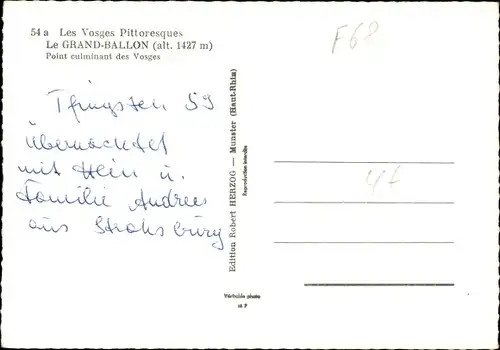 54 a Les Vosges Pittoresques
Le GRAND-BALLON (alt. 1427 m)
Point culminant des Vosges
F68
Pfingsten 59
übernachtet
mit Hein u.
Familie Andres
aus Strasburg
Edition Robert HERZOG — Munster (Haut-Rhin)
Reproduction interdite
Véritable photo